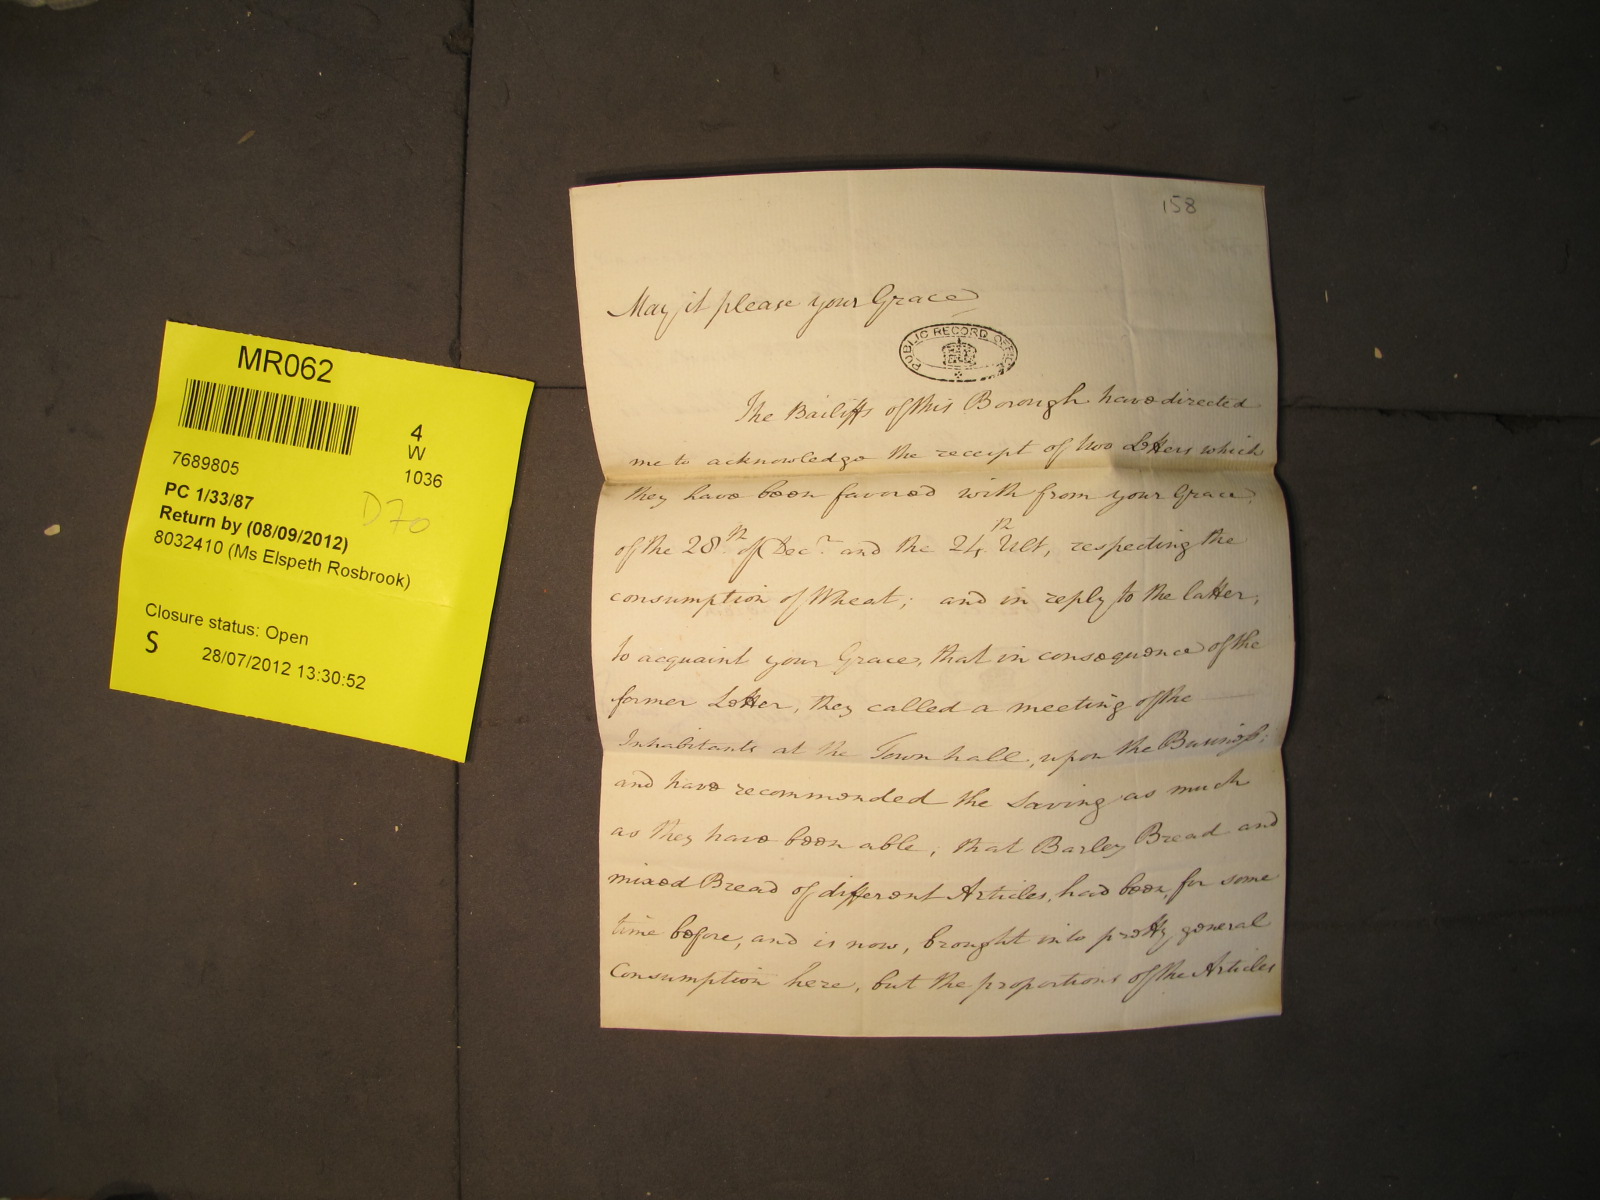 MR062
4
W
1036
7689805
PC 1/33/87
D70
Return by (08/09/2012)
8032410 (Ms Elspeth Rosbrook)
Closure status: Open
S
28/07/2012 13:30:52
158
May it please your Grace
PUBLIC RECORD OFFICE
The Bailiffs of this Borough have directed
me to acknowledge the receipt of two Letters which
they have been favored with from your Grace
of the 28th of Decr. and the 24th Ult, respecting the
consumption of Wheat; and in reply to the latter,
to acquaint your Grace, that in consequence of the
former Letter, they called a meeting of the
Inhabitants at the Town hall, upon the Business;
and have recommended the saving as much
as they have been able; that Barley Bread and
mixed Bread of different Articles, had been, for some
time before, and is now, brought into pretty general
Consumption here, but the proportions of the Articles